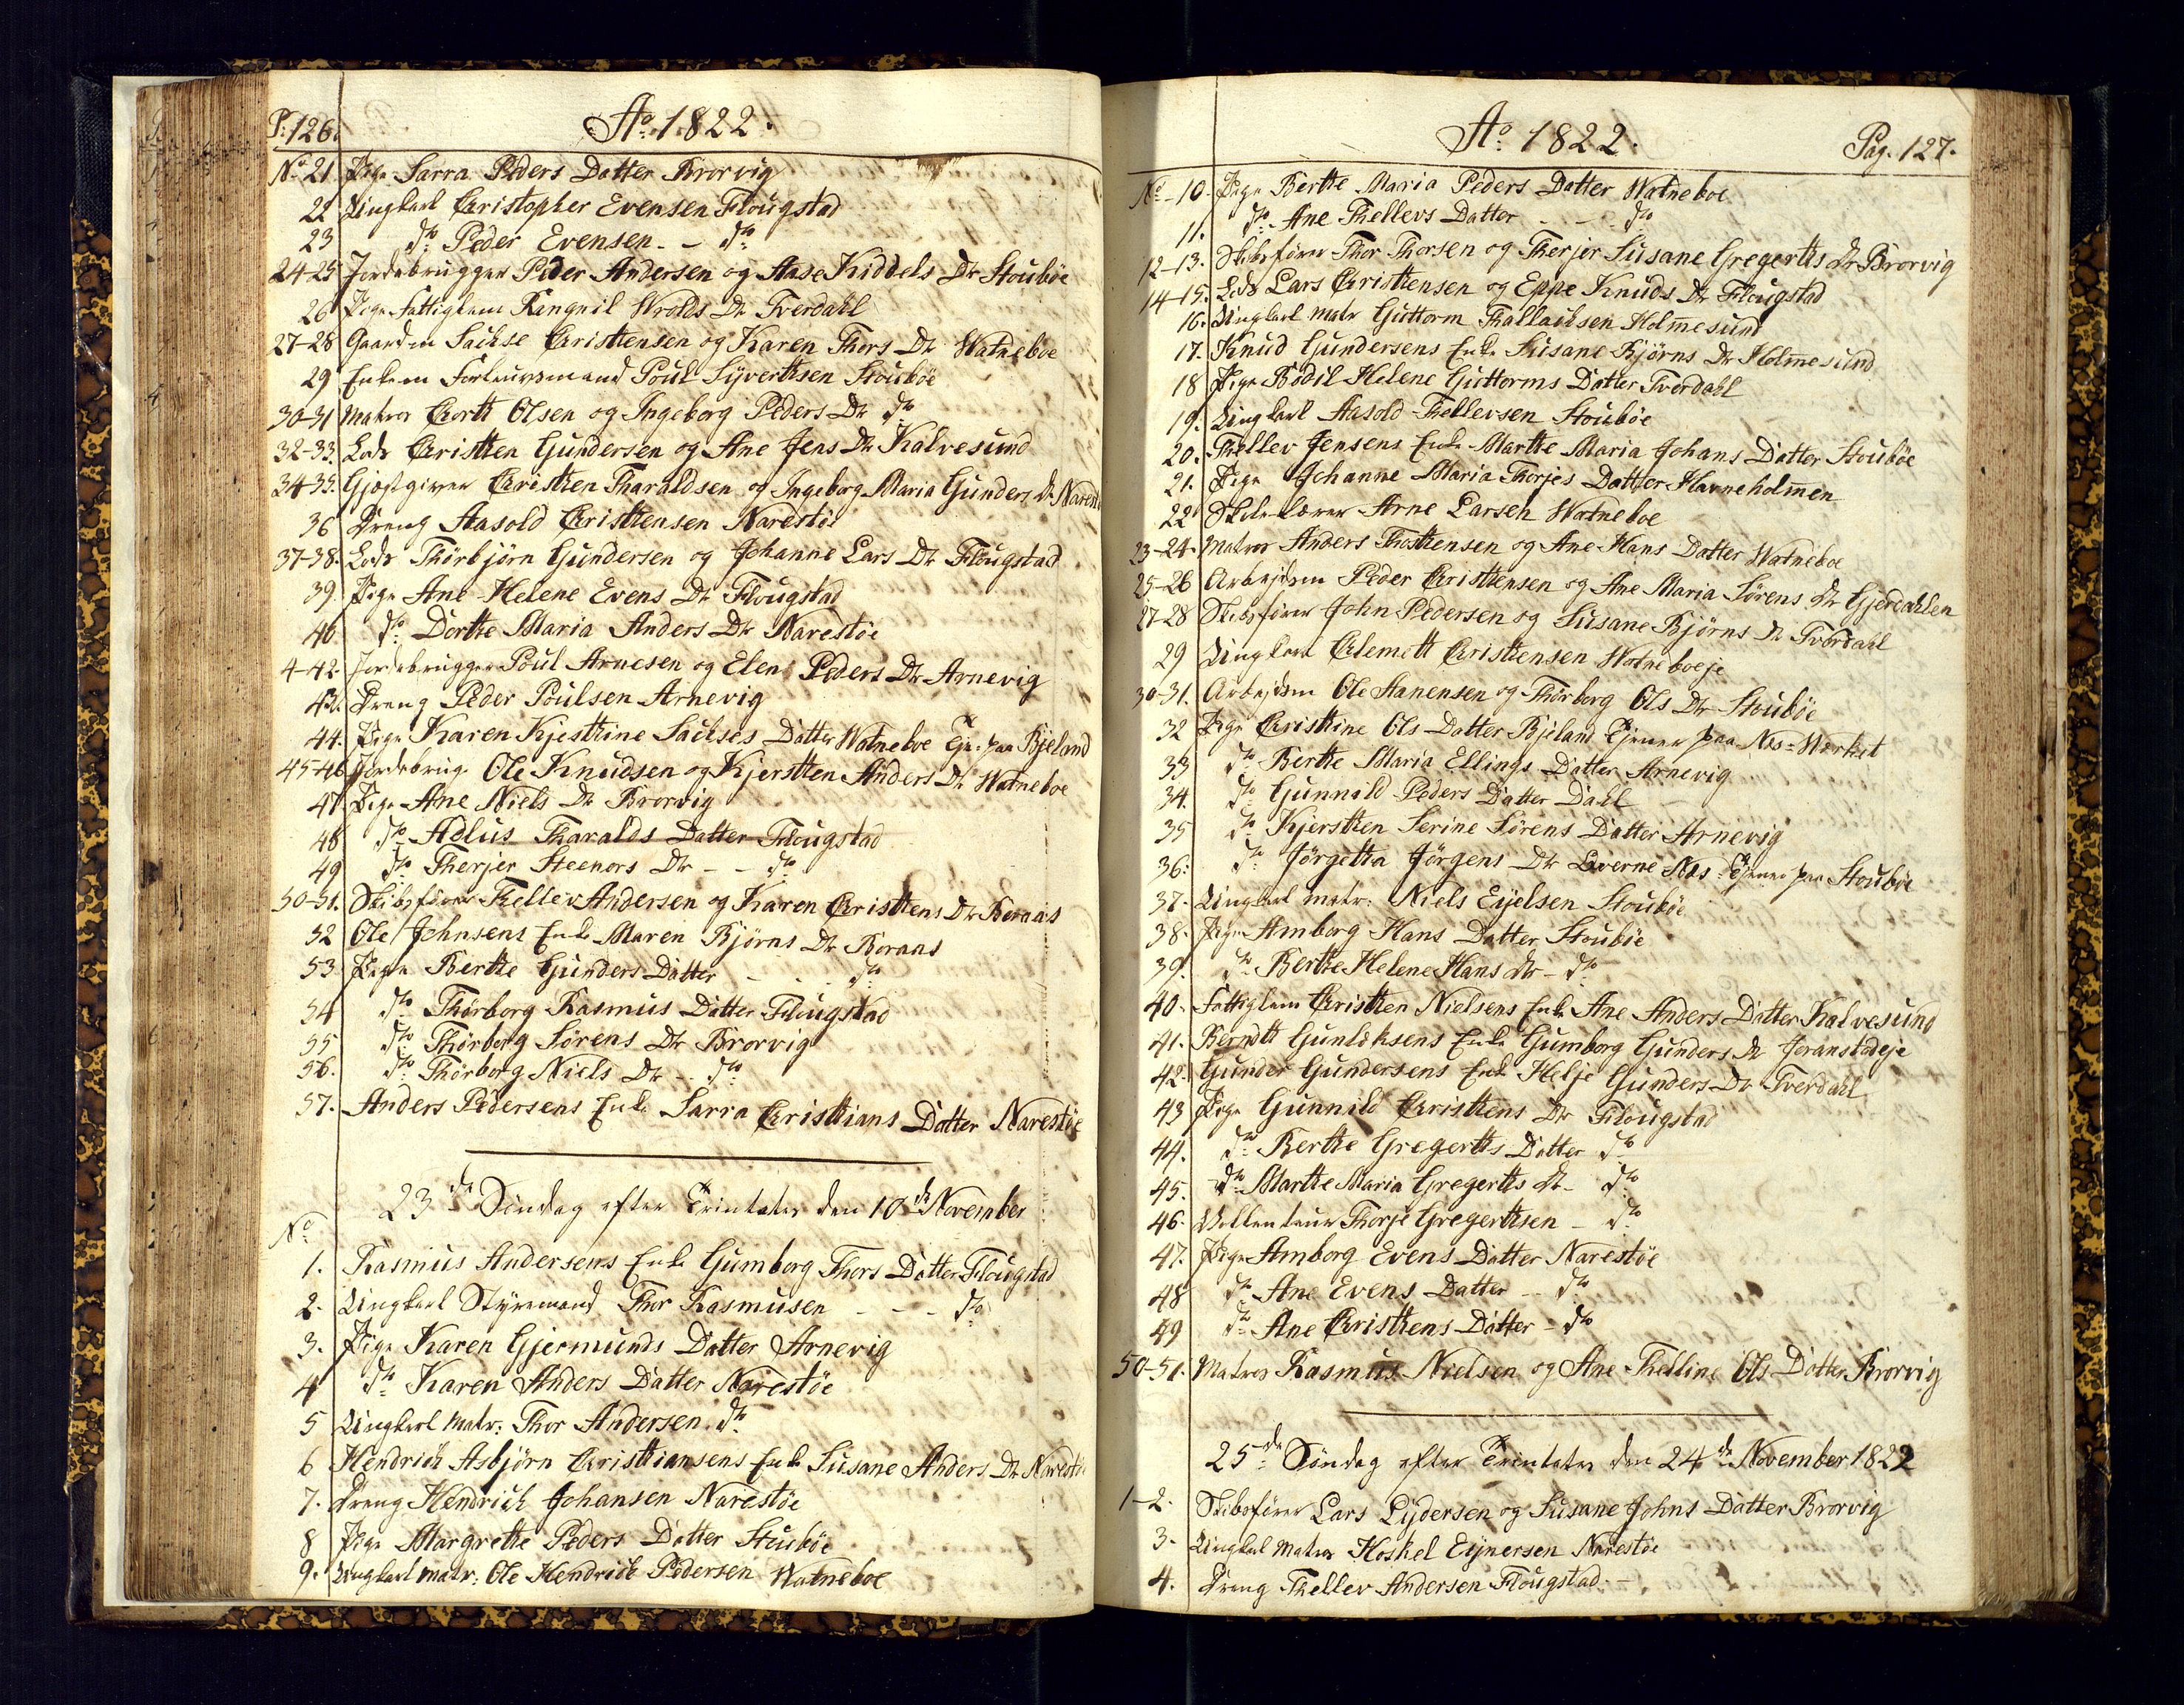 P: 126.
Ao 1822.
No 21 Pige Sarra Peders Datter Brorvig
22 Ungkarl Christopher Evensen Flougstad
23 do Peder Evensen - - do
24-25 Jordebrugger Peder Andersen og Aase Kiddels Dr Stoubøe
26 Pige Fattiglem Rangnil Wrolds Dr Tverdahl
27-28 Gaardm Sackse Christensen og Karen Thors Dr Watneboe
29 Enkem Forluvsmand Poul Syvertsen Stoubøe
30-31 Matros Cortt Olsen og Ingeborg Peders Dr do
32-33. Lods Christen Gundersen og Ane Jens Dr Kalvesund
34-35. Gjæstgiver Christen Tharaldsen og Ingeborg Maria Gunders Dr
36 Dreng Aasold Christensen Narestøe
37-38. Lods Thorbjörn Gundersen og Johanne Lars Dr Flougstad
39. Pige Ane Helene Evens Dr Flougstad
40. do Dorthe Maria Anders Dr Narestøe
4-42. Jordebrugger Poul Arnesen og Elen Peders Dr Arnevig
43. Dreng Peder Poulsen Arnevig
44. Pige Karen Kjestine Sackses Datter Watneboe Tje: paa Bjeland
45-46 Jordebrug. Ole Knudsen og Kjersten Anders Dr Watneboe
47. Pige Ane Niels Dr Brorvig
48 do Adlus Tharalds Datter Flougstad
49 do Therjer Steenors Dr - - do
50-51. Skibsfører Thellev Andersen og Karen Christens Dr Boraas
52 Ole Johnsens Enke Maren Bjørns Dr Boraas
53 Pige Berthe Gunders Datter - - - do
54 do Thorborg Rasmus Datter Flougstad
55 do Thorborg Sørens Dr Brorvig
56. do Thorborg Niels Dr - - do
57. Anders Pedersens Enke Sarra Christians Datter Narestøe
23de Søndag efter Trinitatis den 10de November
No
1. Rasmus Andersens Enke Gumborg Thors Datter Flougstad
2. Ungkarl Styrmand Thor Rasmusen - - - do
3. Pige Karen Gjermunds Datter Arnevig
4 do Karen Anders Datter Narestøe
5 Ungkarl Matr: Thor Andersen do
6 Hendrich Asbjörn Christiansens Enke Susane Anders Dr Narestøe
7. Dreng Hendrich Johansen Narestøe
8 Pige Margrethe Peders Datter Stoubøe
9. Ungkarl matr: Ole Hendrich Pedersen Watneboe
Ao 1822.
Pag. 127.
No 10. Pige Berthe Maria Peders Datter Watneboe
11. do Ane Thellevs Datter - - - do
12-13. Skibsfører Thor Thorsen og Therjer Susane Gregerths Dr Brorvig
14-15. Lods Lars Christensen og Eppe Knuds Dr Flougstad
16. Ungkarl matr Guttorm Thallacksen Holmesund
17. Knud Gundersens Enke Susane Bjørns Dr Holmesund
18 Pige Bodil Helene Guttorms Datter Tverdahl
19. Ungkarl Aasold Thellevsen Stoubøe
20. Thellev Jensens Enke Marthe Maria Johans Datter Stoubøe
21. Pige Johanne Maria Thorjes Datter Havneholmen
22 Skolelærer Arne Larsen Watneboe
23-24. Matros Anders Thostensen og Ane Hans Datter Watneboe
25-26 Arbejdsm Peder Christensen og Ane Maria Sørens Dr Gjerdahlen
27-28 Skibsfører John Pedersen og Susane Bjørns Dr Tverdahl
29 Ungkarl Clemett Christensen Watneboeje
30-31. Arbejdsm Ole Aanensen og Thorborg Ols Dr Stoubøe
32 Pige Christine Ols Datter Bjeland Tjener paa Nes-Værket
33 do Berthe Maria Ellings Datter Arnevig
34. do Gunnild Peders Datter Dahl
35 do Kjersten Serine Sørens Datter Arnevig
36: do Jörgetta Jörgens Dr Qverne Nes Tjener paa Stoubøe
37. Ungkarl matr: Niels Eyelsen Stoubøe
38. Pige Amborg Hans Datter Stoubøe
39. do Berthe Helene Hans Dr - do
40. Fattiglem Christen Nielsens Enke Ane Anders Datter Kalvesund
41. Berndt Gunliksens Enke Gumborg Gunders Dr Joranstadeje
42. Gunder Gundersens Enke Helje Gunders Dr Tverdahl
43 Pige Gunnild Christens Dr Flougstad
44. do Berthe Gregerths Datter do
45. do Marthe Maria Gregerths Dr - do
46. Vollenteur Thorje Gregertsen - do
47. Pige Amborg Evens Datter Narestøe
48 do Ane Evens Datter - - do
49 do Ane Christens Datter - do
50-51. Matros Rasmus Nielsen og Ane Thelline Ols Datter Brorvig
25de Søndag efter Trinitatis den 24de November 1822
1-2. Skibsfører Lars Lydersen og Susane Johns Datter Brorvig
3. Ungkarl Matros Hoskel Eynersen Narestøe
4. Dreng Thellev Andersen Flougstad -